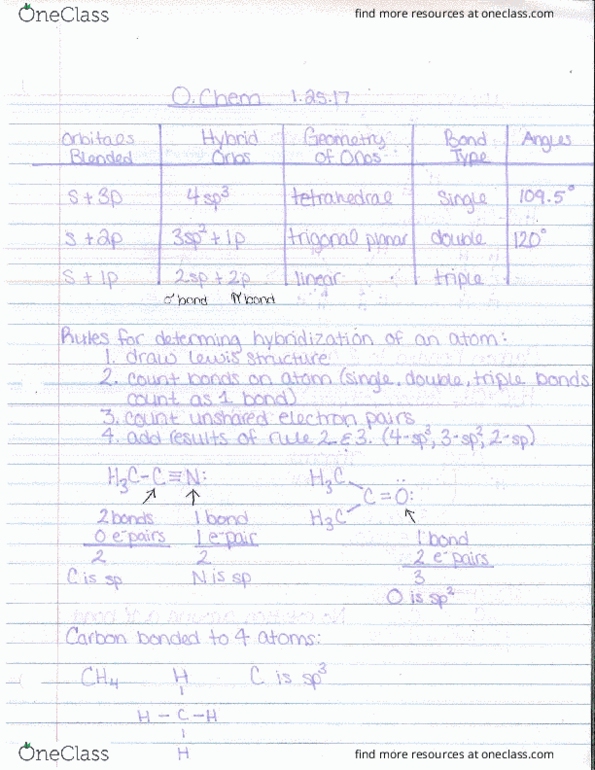 OneClass
find more resources at oneclass.com
O.Chem 1.25.17
Orbitals Blended | Hybrid Orbs | Geometry of Orbs | Bond Type | Angles
s + 3p | 4 sp³ | tetrahedral | single | 109.5°
s + 2p | 3sp² + 1p | trigonal planar | double | 120°
s + 1p | 2sp + 2p | linear | triple
σ bond π bond
Rules for determing hybridization of an atom:
1. draw lewis structure
2. count bonds on atom (single, double, triple bonds
count as 1 bond)
3. count unshared electron pairs
4. add results of rule 2 & 3. (4-sp³, 3-sp², 2-sp)
H₃C-C≡N:
H₃C
C=O:
H₃C
2 bonds 1 bond
0 e⁻pairs 1 e⁻pair
2 2
C is sp N is sp
1 bond
2 e⁻pairs
3
O is sp²
Carbon bonded to 4 atoms:
CH₄ H C is sp³
H - C - H
H
OneClass
find more resources at oneclass.com